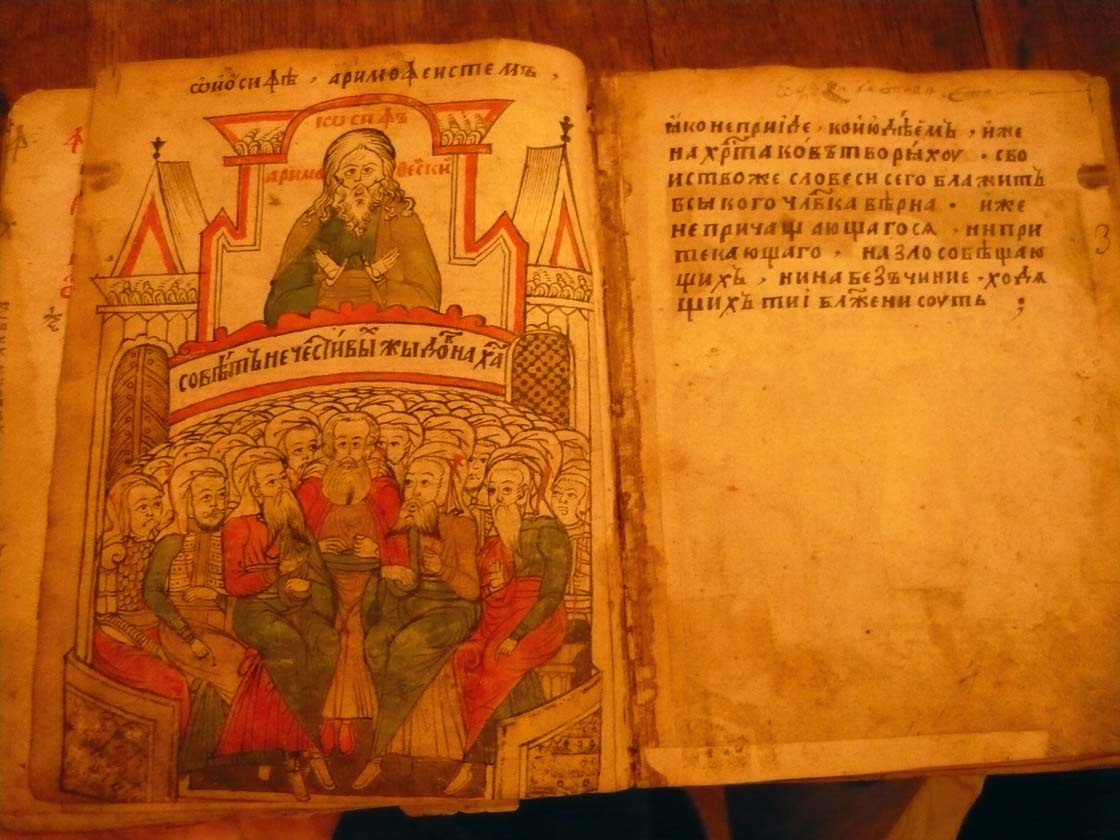 ѡ҆ио҆сифѣ , аримоѳеистемъ ,
иѡсифъ
арима ѳеский
совѣ́тъ нечести́вы́х жыдѡ́в на хр҃та̀
ꙗко неприіде , кой ю҆дѣемъ , и҆же
на хр҃та ковъ творѧ́хоу · сво
иство же словеси сего блажитъ
всѧкого чл҃вка вѣрна · и҆же
непричащающагосѧ , нипри
текающаго , на зло совѣщаю
щихъ , ни на безъчиние · ходѧ
щихъ тиі бл҃жени соуть ;
З